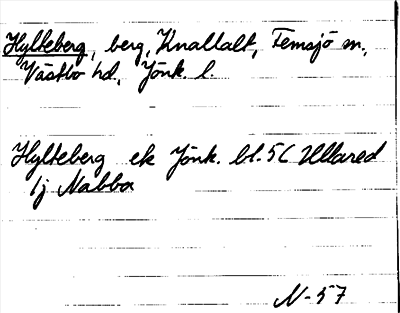 Hylteberg, berg, Knallalt, Femsjö sn,
Västbo hd, Jönk. l.
Hylteberg ek Jönk. bl. 5C Ullared
lj Nabba
N-57